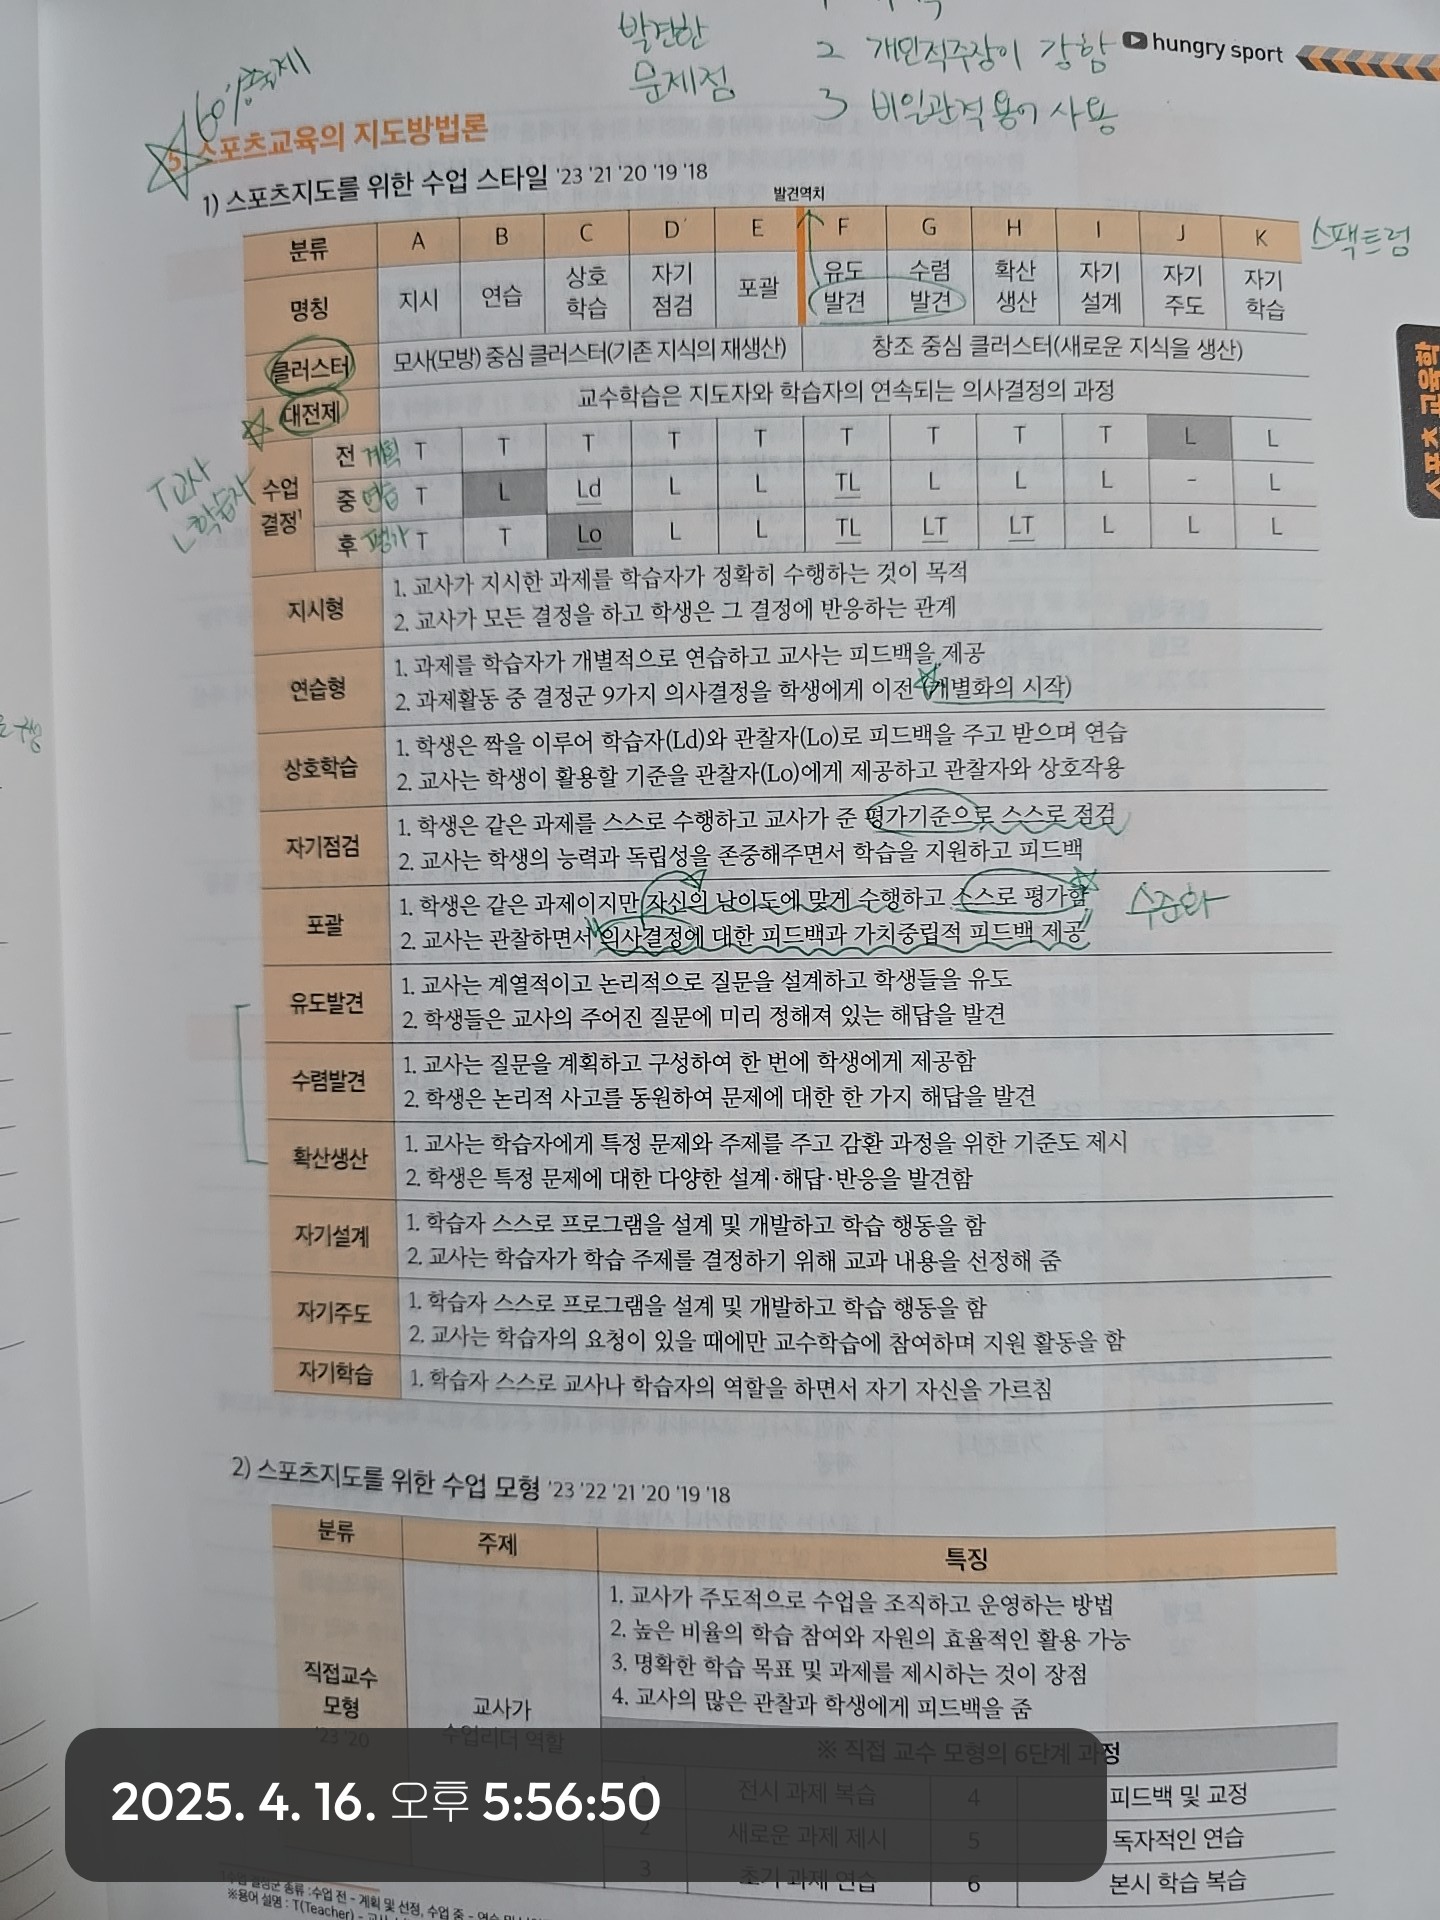 발견한
문제점
2 개인적주장이 강함
3 비일관적 용어 사용
hungry sport
60% 출제
5. 스포츠교육의 지도방법론
1) 스포츠지도를 위한 수업 스타일 '23 '21 '20 '19 '18
발견역치
분류 A B C D' E F G H I J K
스팩트럼
명칭 지시 연습 상호 학습 자기 점검 포괄 유도 발견 수렴 발견 확산 생산 자기 설계 자기 주도 자기 학습
클러스터 모사(모방) 중심 클러스터(기존 지식의 재생산) 창조 중심 클러스터(새로운 지식을 생산)
대전제 교수학습은 지도자와 학습자의 연속되는 의사결정의 과정
스포츠 교육학
T 교사
L 학습자
수업 결정¹
전 계획 T T T T T T T T T L L
중 연습 T L Ld L L TL L L L - L
후 평가 T T Lo L L TL LT LT L L L
지시형
1. 교사가 지시한 과제를 학습자가 정확히 수행하는 것이 목적
2. 교사가 모든 결정을 하고 학생은 그 결정에 반응하는 관계
연습형
1. 과제를 학습자가 개별적으로 연습하고 교사는 피드백을 제공
2. 과제활동 중 결정군 9가지 의사결정을 학생에게 이전 (개별화의 시작)
상호학습
1. 학생은 짝을 이루어 학습자(Ld)와 관찰자(Lo)로 피드백을 주고 받으며 연습
2. 교사는 학생이 활용할 기준을 관찰자(Lo)에게 제공하고 관찰자와 상호작용
자기점검
1. 학생은 같은 과제를 스스로 수행하고 교사가 준 평가기준으로 스스로 점검
2. 교사는 학생의 능력과 독립성을 존중해주면서 학습을 지원하고 피드백
포괄
1. 학생은 같은 과제이지만 자신의 난이도에 맞게 수행하고 스스로 평가함
수준화
2. 교사는 관찰하면서 의사결정에 대한 피드백과 가치중립적 피드백 제공
유도발견
1. 교사는 계열적이고 논리적으로 질문을 설계하고 학생들을 유도
2. 학생들은 교사의 주어진 질문에 미리 정해져 있는 해답을 발견
수렴발견
1. 교사는 질문을 계획하고 구성하여 한 번에 학생에게 제공함
2. 학생은 논리적 사고를 동원하여 문제에 대한 한 가지 해답을 발견
확산생산
1. 교사는 학습자에게 특정 문제와 주제를 주고 감환 과정을 위한 기준도 제시
2. 학생은 특정 문제에 대한 다양한 설계·해답·반응을 발견함
자기설계
1. 학습자 스스로 프로그램을 설계 및 개발하고 학습 행동을 함
2. 교사는 학습자가 학습 주제를 결정하기 위해 교과 내용을 선정해 줌
자기주도
1. 학습자 스스로 프로그램을 설계 및 개발하고 학습 행동을 함
2. 교사는 학습자의 요청이 있을 때에만 교수학습에 참여하며 지원 활동을 함
자기학습
1. 학습자 스스로 교사나 학습자의 역할을 하면서 자기 자신을 가르침
2) 스포츠지도를 위한 수업 모형 '23 '22 '21 '20 '19 '18
분류 주제 특징
직접교수
모형
'23 '20
교사가
수업리더 역할
1. 교사가 주도적으로 수업을 조직하고 운영하는 방법
2. 높은 비율의 학습 참여와 자원의 효율적인 활용 가능
3. 명확한 학습 목표 및 과제를 제시하는 것이 장점
4. 교사의 많은 관찰과 학생에게 피드백을 줌
※ 직접 교수 모형의 6단계 과정
전시 과제 복습 4 피드백 및 교정
2 새로운 과제 제시 5 독자적인 연습
3 초기 과제 연습 6 본시 학습 복습
2025. 4. 16. 오후 5:56:50
종류 : 수업 전 - 계획 및 선정, 수업 중 - 연습 및
※용어 설명 : T(Teacher) - 교사